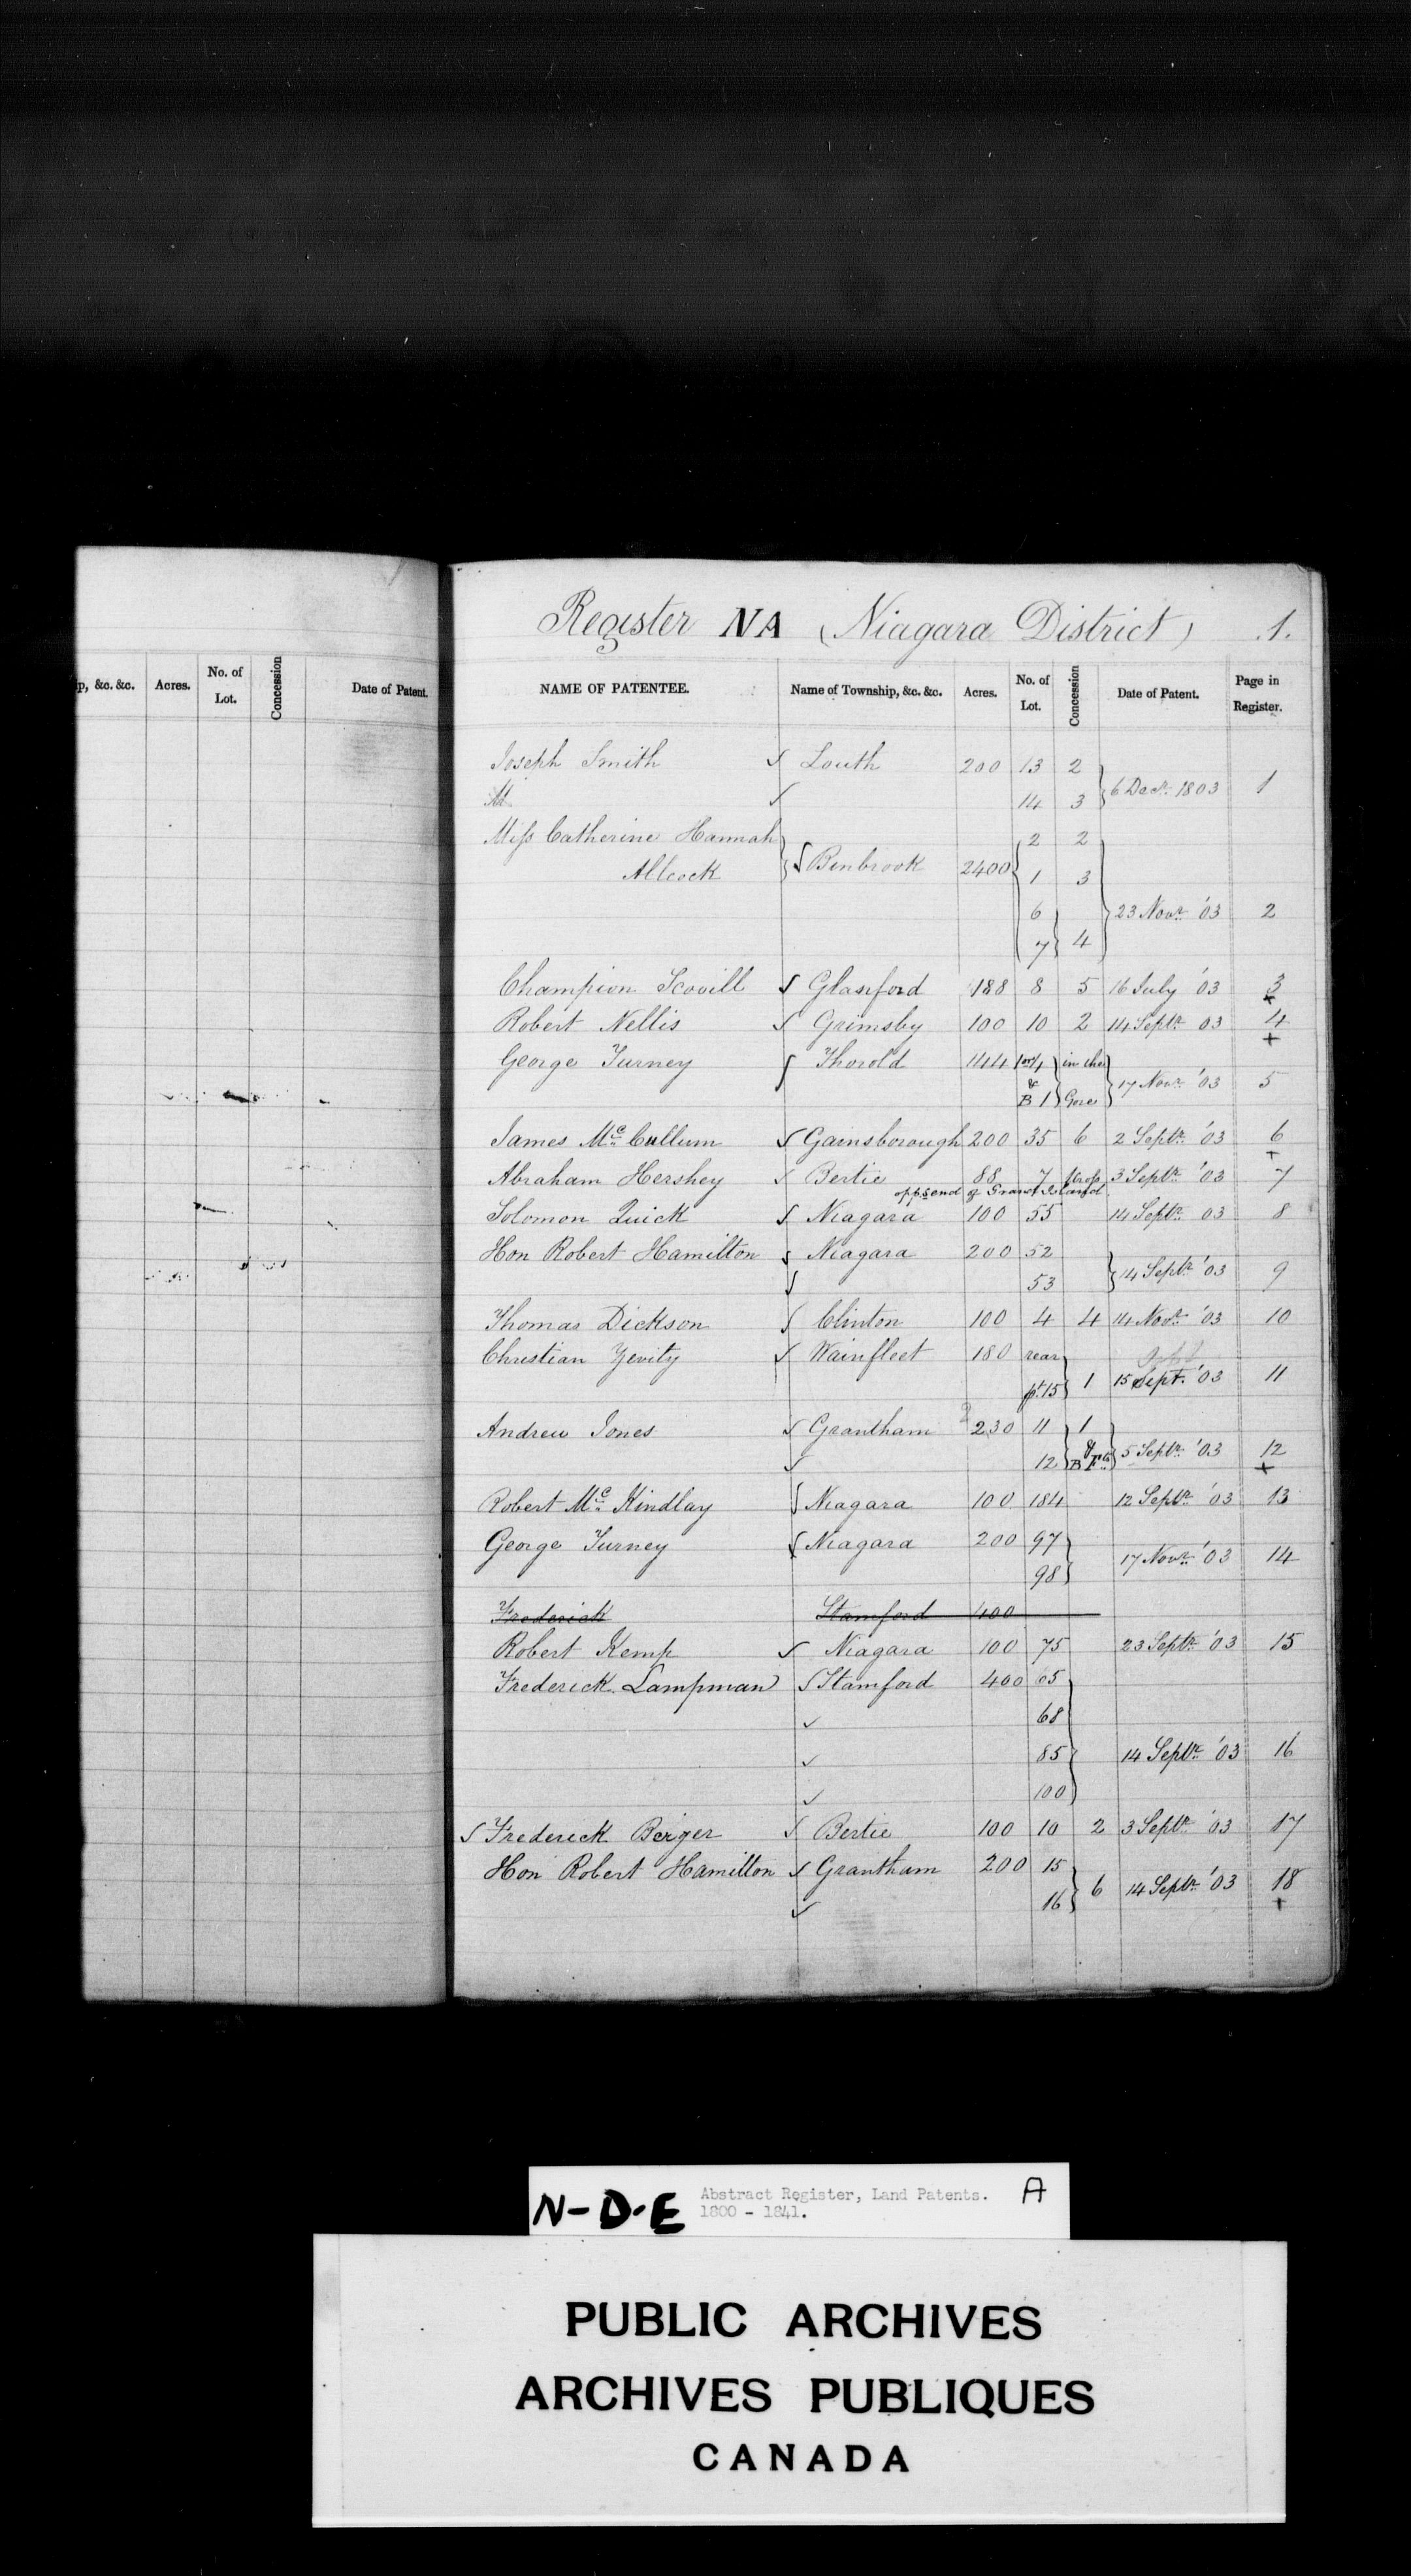 p, &c. &c. Acres. No. of Lot. Concession Date of Patent.
Register NA (Niagara District) 1.
NAME OF PATENTEE. Name of Township, &c. &c. Acres. No. of Lot. Concession Date of Patent. Page in Register.
Joseph Smith ✓ Louth 200 13 2
✓ 14 3 } 6 Decr. 1803 1
Miss Catherine Hannah 2 2
Allcock } ✓ Binbrook 2400 1 3
6 } 23 Novr. '03 2
7 } 4
Champion Scovill ✓ Glanford 188 8 5 16 July '03 3
Robert Nellis ✓ Grimsby 100 10 2 14 Septr. 03 4
George Turney ✓ Thorold 144 in the
& B 1 } Gore } 17 Novr. '03 5
James Mc. Cullum ✓ Gainsborough 200 35 6 2 Septr. '03 6
Abraham Hershey ✓ Bertie 88 7 3 Septr. '03 7
opps. end of Grand Island
Solomon Quick ✓ Niagara 100 55 14 Septr. 03 8
Hon Robert Hamilton ✓ Niagara 200 52
✓ 53 } 14 Septr. '03 9
Thomas Dickson ✓ Clinton 100 4 4 14 Novr. '03 10
Christian Zevity ✓ Wainfleet 180 rear
pt. 15 } 1 15 Sept. '03 11
Andrew Jones ✓ Grantham 230 11 1
✓ 12 } & B Ft. } 5 Septr. '03 12
Robert Mc. Kindlay ✓ Niagara 100 184 12 Septr. '03 13
George Turney ✓ Niagara 200 97
98 } 17 Novr. '03 14
Frederick Stamford 400
Robert Kemp ✓ Niagara 100 75 23 Septr. '03 15
Frederick Lampman ✓ Stamford 400 65
✓ 68
✓ 85 } 14 Septr. '03 16
✓ 100
✓ Frederick Berger ✓ Bertie 100 10 2 3 Septr. '03 17
Hon Robert Hamilton ✓ Grantham 200 15
✓ 16 } 6 14 Septr. '03 18
N-D-E Abstract Register, Land Patents. A
1800 - 1841.
PUBLIC ARCHIVES
ARCHIVES PUBLIQUES
CANADA